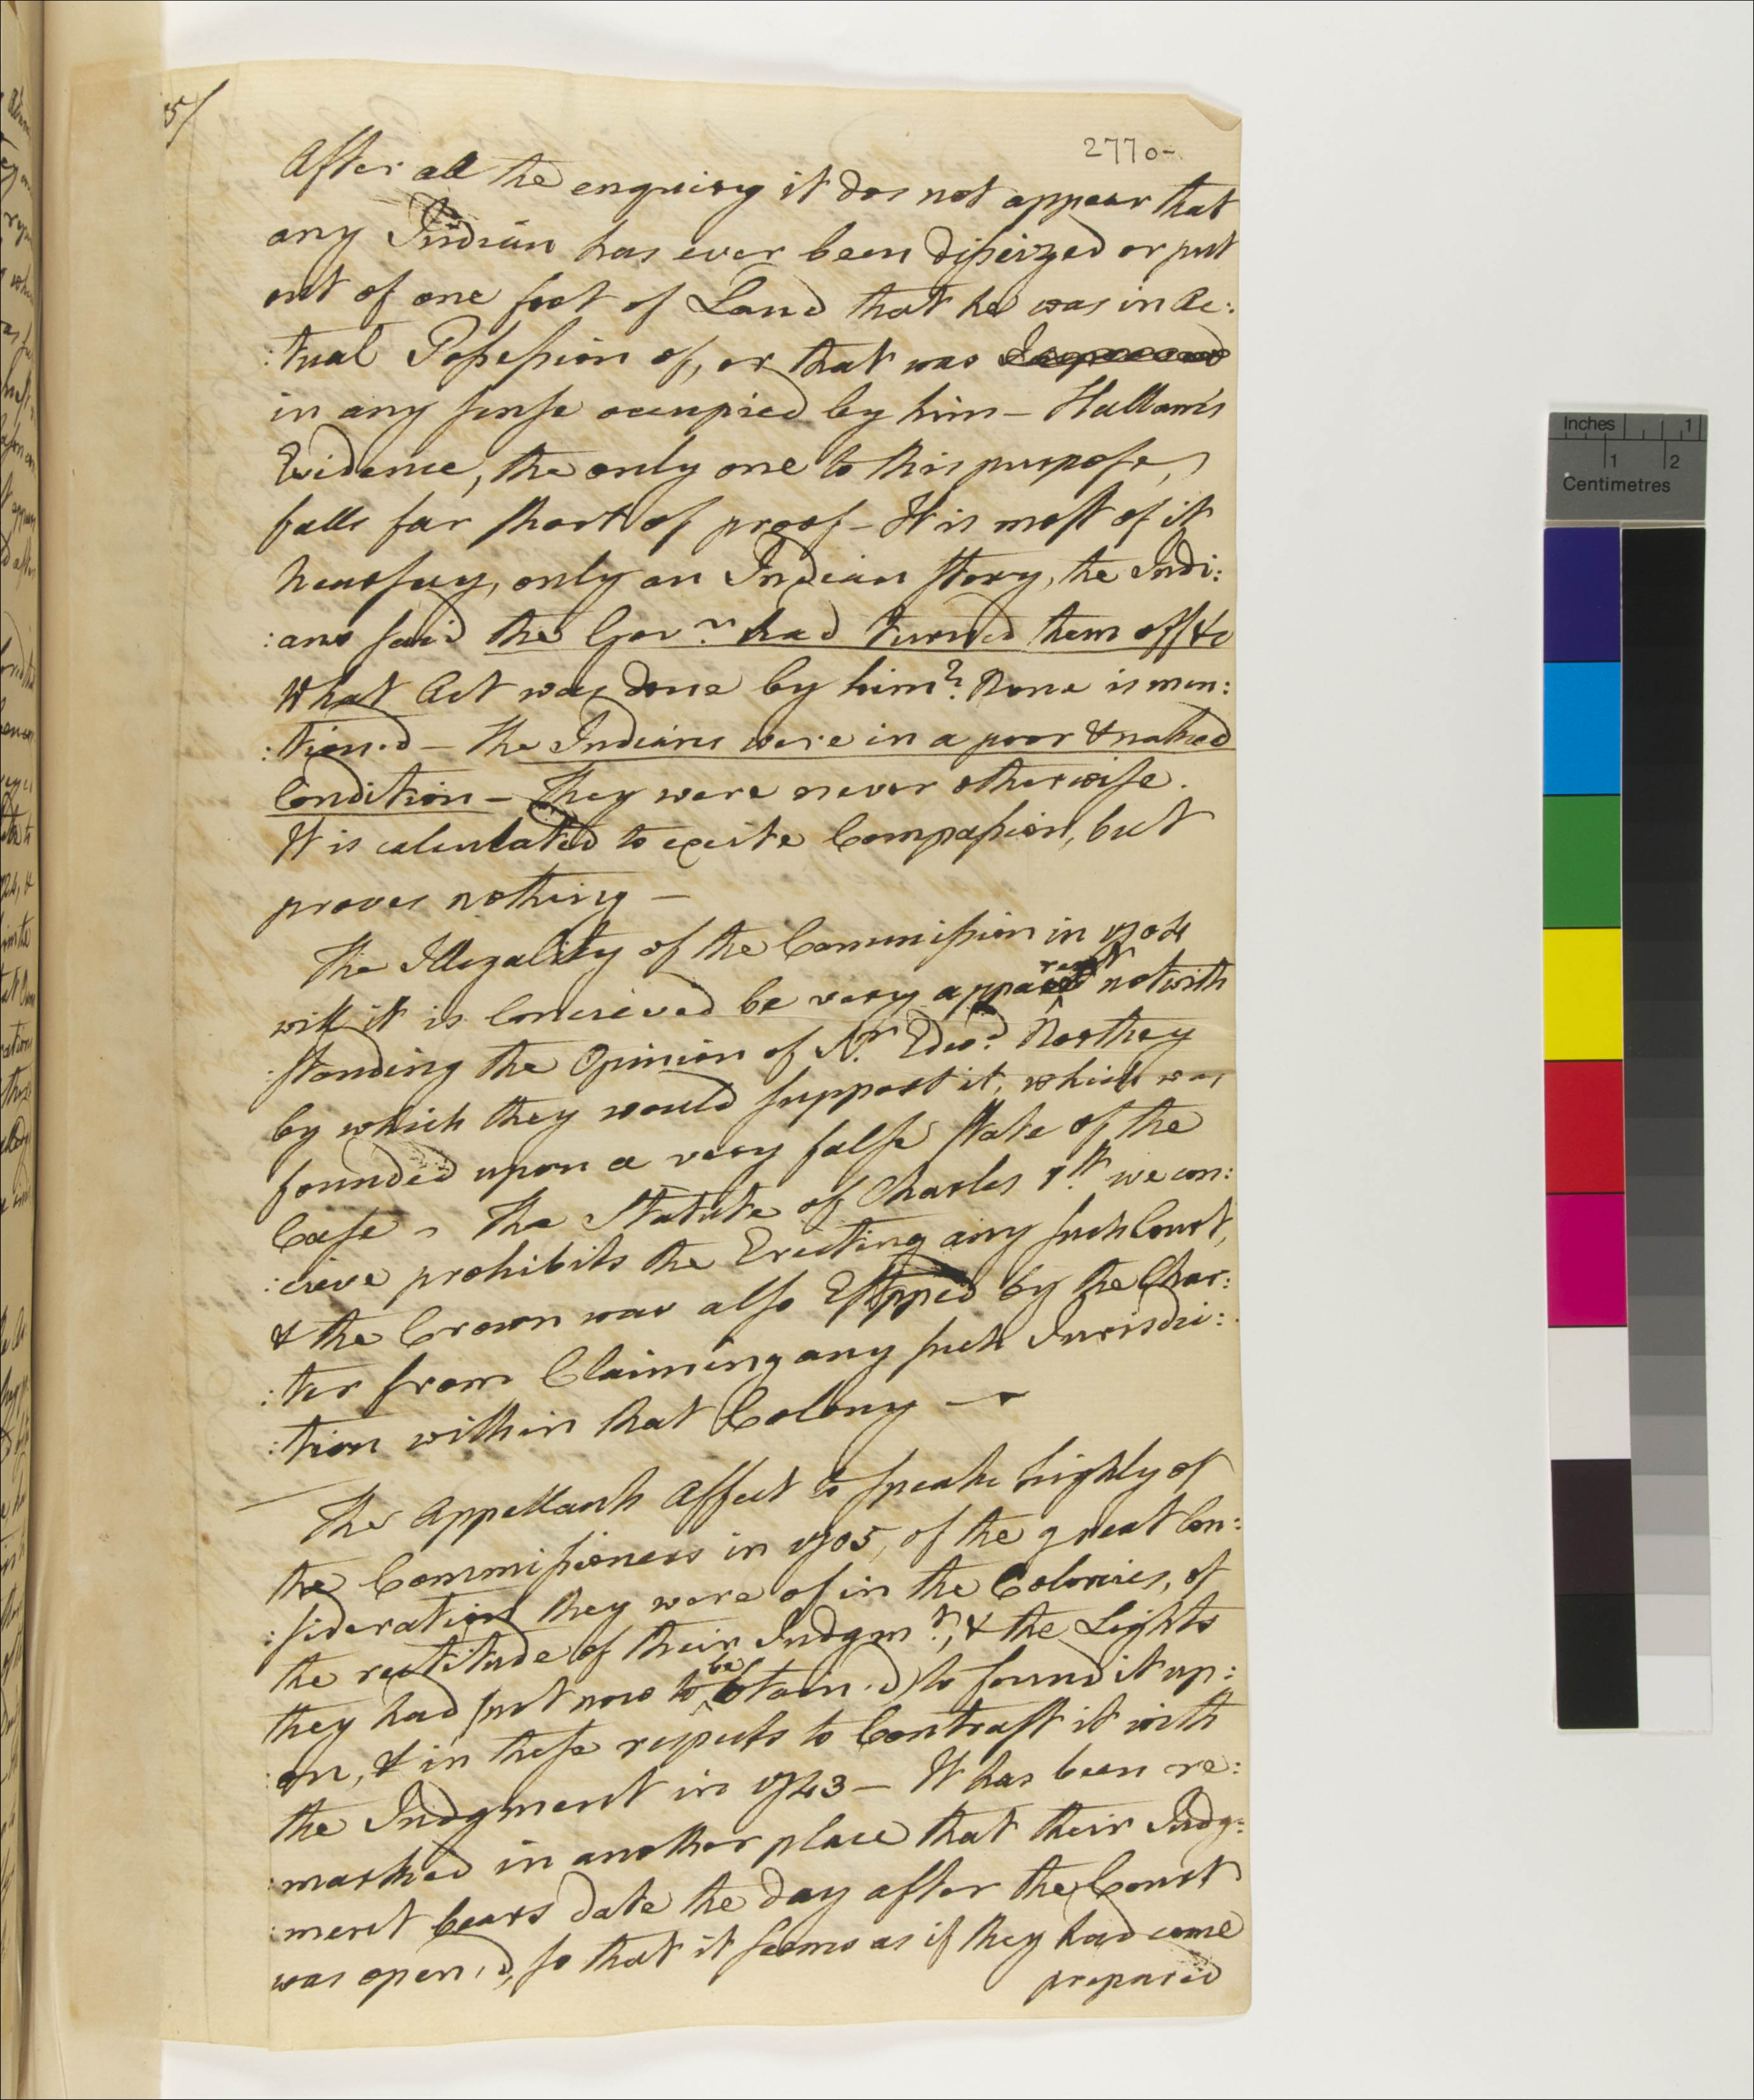 5/
2770-
After all the enquiry it dos not appear that
any Indian has ever been disseizzed or put
out of one foot of Land that he was in Ac:
:tual Possession of, or that was
in any sense occupied by him — Hallam's
Evidence, the only one to this purpose,
falls far short of proof — It is most of it
hearsay, only an Indian story, the Indi:
:ans said the Govr. had turned them off &c
What Act was done by him? None is men:
:tioned — The Indians were in a poor & naked
Condition — They were never otherwise.
It is calculated to excite Compassion, but
proves nothing —
The Illegality of the Commission in 1704
will it is Concieved be very apparent notwith
:standing the Opinion of Sr. Edwd. Northey
by which they would support it, which was
founded upon a very false state of the
Case — The Statute of Charles 1st. we con:
:cieve prohibits the Erecting any such Court,
& the Crown was also Estopped by the Char:
:ter from Claiming any such Jurisdic:
:tion within that Colony —
The Appellants Affect to speake highly of
the Commissioners in 1705, of the great Con:
:sideration they were of in the Colonies, of
the rectitude of their Judgmt., & the Lights
they had (not now to be obtain'd) to found it up:
:on, & in these respects to Contrast it with
the Judgment in 1743 — It has been re:
:marked in another place that their Judg:
:ment bears date the day after the Court
was open'd, so that it seems as if they had come
prepared